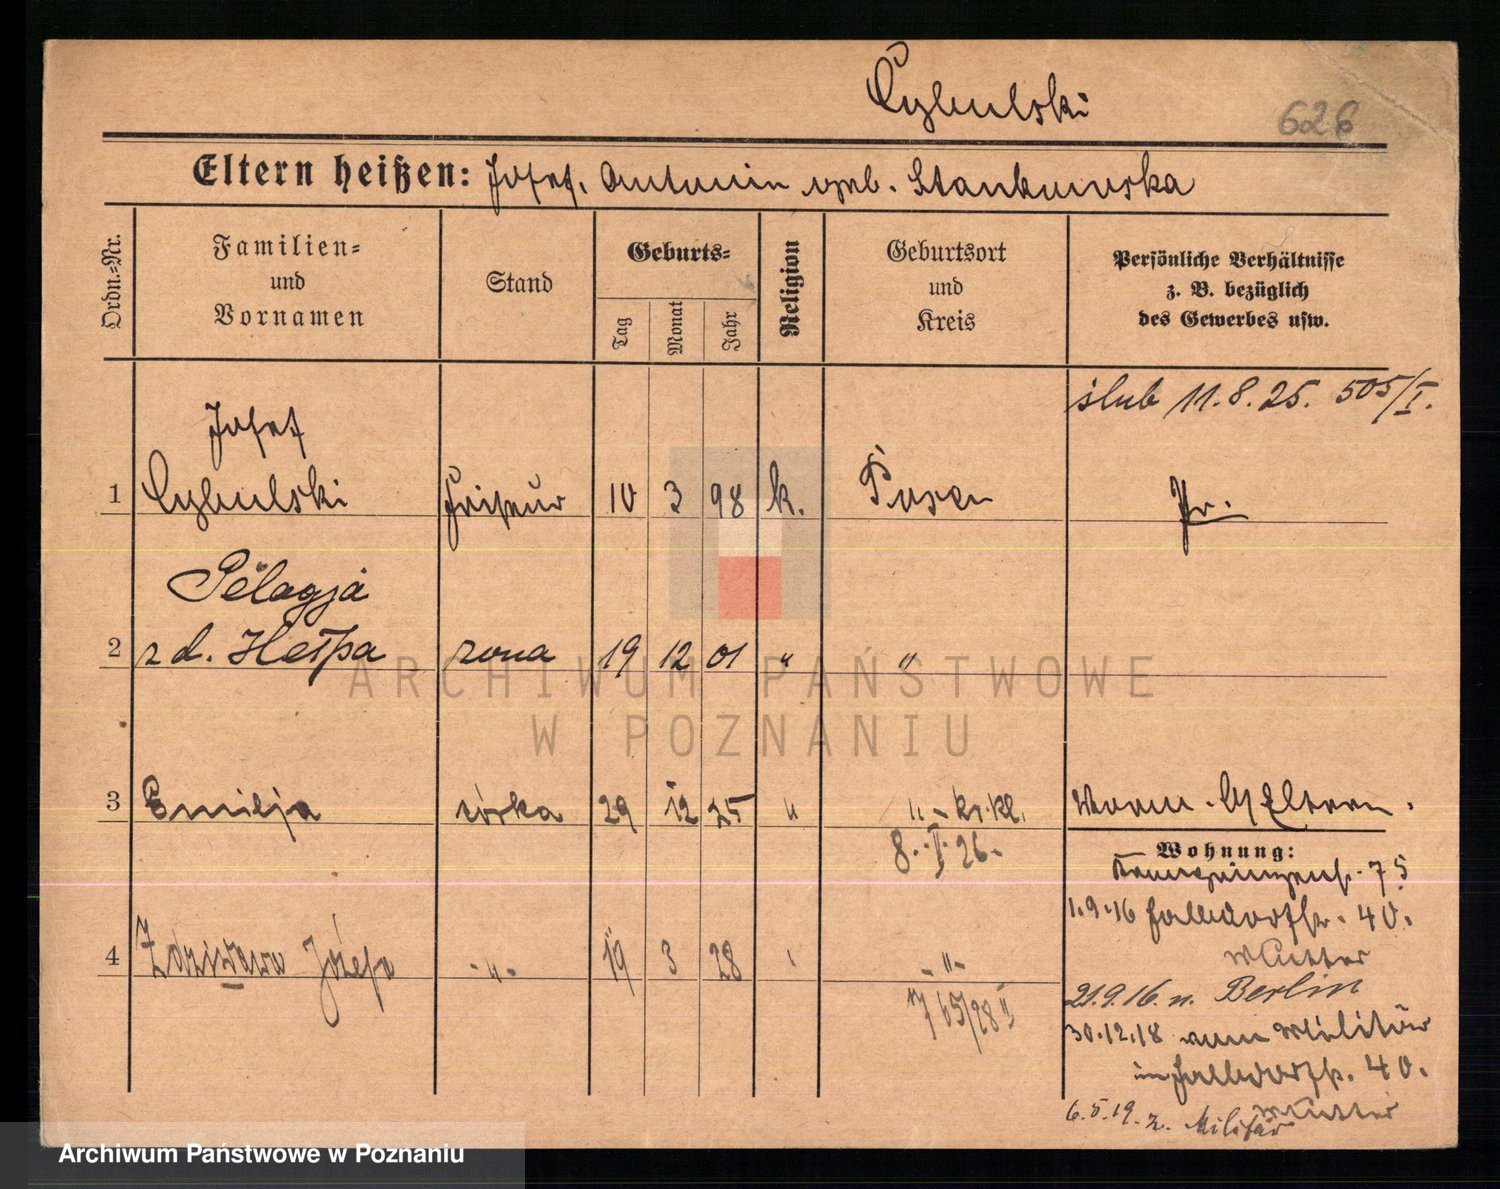 Cybulski
626
Eltern heißen: Josef. Antonin geb. Stankowska
Ordn.-Nr.
Familien- und Vornamen
Stand
Geburts-
Tag
Monat
Jahr
Religion
Geburtsort und Kreis
Persönliche Verhältnisse z. B. bezüglich des Gewerbes usw.
ślub 11.8.25. 505/I.
Josef
1 Cybulski Friseur 10 3 98 k. Posen Pr.
Pelagja
2 z d. Hełpa zona 19 12 01 " "
ARCHIWUM PAŃSTWOWE
W POZNANIU
3 Emilja córka 29 12 25 " "
8. I. 26.
Wohnung:
75
1.9.16 40.
Mutter
4 Józefa -"- 19 3 28 -"-
21.9.16. n. Berlin
765/28 II
30.12.18 vom Militär
40.
Mutter
6.5.19. z. Militär
Archiwum Państwowe w Poznaniu